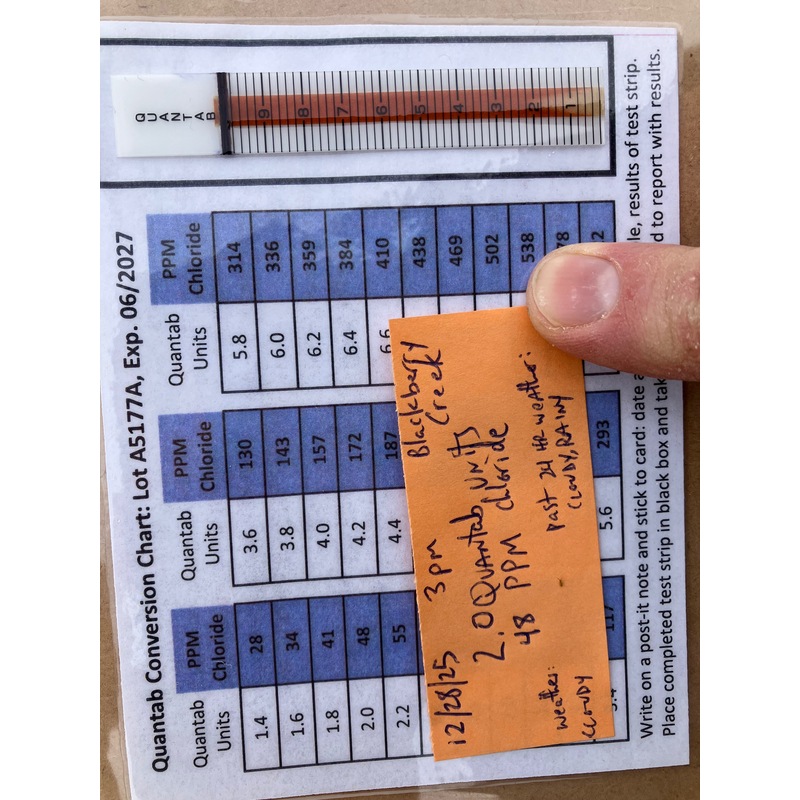 Quantab Conversion Chart: Lot A5177A, Exp. 06/2027
Quantab Units PPM Chloride Quantab Units PPM Chloride Quantab Units PPM Chloride
1.4 28 3.6 130 5.8 314
1.6 34 3.8 143 6.0 336
1.8 41 4.0 157 6.2 359
2.0 48 4.2 172 6.4 384
2.2 55 4.4 187 6.6 410
438
469
502
538
117 5.6 293
12/28/25 3pm Blackberry Creek
2.0 Quantab Units
48 PPM chloride
Weather: CLOUDY
Past 24 HR Weather: CLOUDY, RAINY
QUANTAB
9 8 7 6 5 4 3 2 1
Write on a post-it note and stick to card: date results of test strip.
Place completed test strip in black box and to report with results.